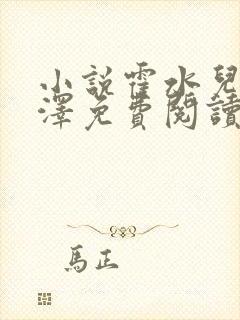 小說霍水兒
澤免費閱讀
馬正